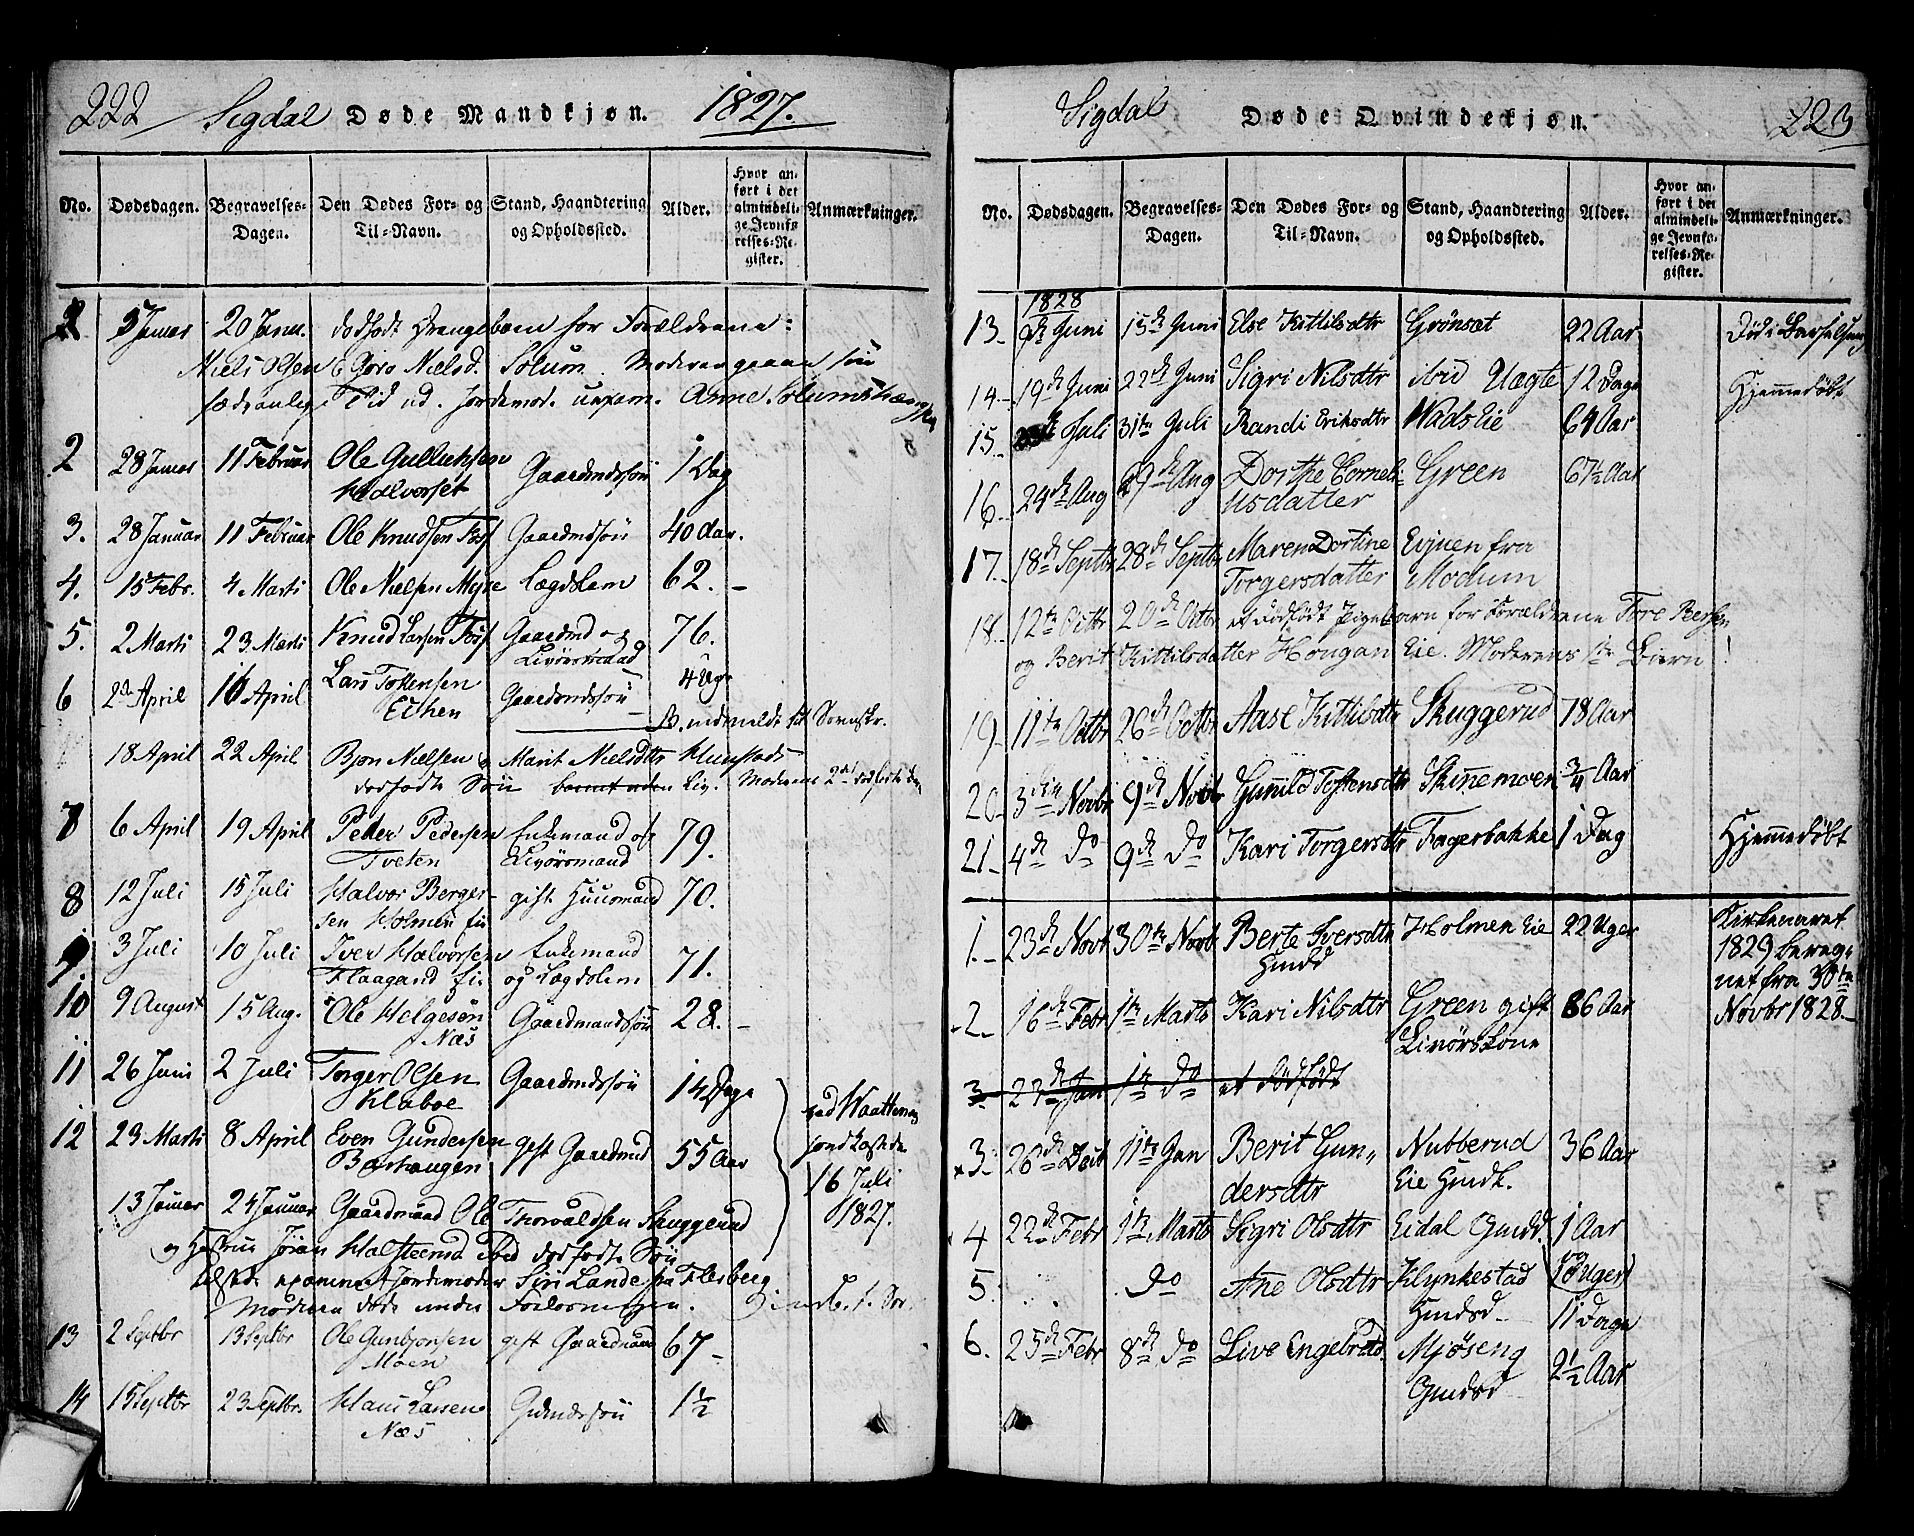 222 Sigdal Døde Mandkjøn. 1827.
No. Dødsdagen. Begravelses-Dagen. Den Dødes For- og Til-Navn. Stand, Haandtering og Opholdssted. Alder. Hvor anført i det almindelige Jevnførelses-Register. Anmærkninger.
5 Januar 20 Janu. dødfødt Drengebarn for Forældrene:
Niels Olsen & Goro Nielsd. Solum.
Tid ud. Jordemod. uexam. Anne
2 28 Januar 11 Februar Ole Gulliksen Gaardmdssøn 1 Dag
Halvorset
3. 28 Januar 11 Februar Ole Knudsen Foss Gaardmdssøn 40 Aar.
4. 15 Febr. 4 Marti Ole Nielsen Myre Lægdslem 62. –
5. 2 Marti 23 Marti Knud Larsen Foss Gaardmd og 76.
Livörsmand
6 2de April 16 April Lars Tostensen Gaardmdssøn 4 Ug.
Eken
18 April 22 April Bjørn Nielsen & Marit Nielsdtr
dødfødte Søn
7 6 April 19 April Peder Pedersen Enkemand og 79.
Tveten Livörsmand
8 12 Juli 15 Juli Halvor Berger- gift Huusmand 70.
sen Holmen Eie
9. 3 Juli 10 Juli Iver Halvorsen Enkemand 71.
Flaagand Eie og Lægdslem
10 9 August 15 Aug. Ole Helgesøn Gaardmandssøn 28. –
Næs
11 26 Juni 2 Juli Torger Olsen Gaardmdssøn 14 Dage
Klaboe
12 23 Marti 8 April Even Gundersen gift Gaardmd 55 Aar
16 Juli
1827.
13 Januar 24 Januar Gaardmand Ole Thorvaldsen Skuggerud
og Hustrue Jöran Halsteensd. dødfødte Søn
Jordemoder Siri Lande fra Flesberg
Moderen døde under Forløsningen.
13 2 Septbr 13 Septbr Ole Gunbjørnsen gift Gaardmand 67 –
Moen
14 15 Septbr 23 Septbr. Hans Larsen 1½
Næs
Sigdal Døde Qvindekjøn. 223
No. Dødsdagen. Begravelses-Dagen. Den Dødes For- og Til-Navn. Stand, Haandtering og Opholdssted. Alder. Hvor anført i det almindelige Jevnførelses-Register. Anmærkninger.
1828
13. 9de Juni 15de Juni Else Kittilsdtr Grönsæt 22 Aar Död i Barselseng
14. 19de Juni 22de Juni Sigri Nilsdtr ibid Uægte 12 Dage Hjemmedöbt
15. Juli 31te Juli Randi Eriksdtr Wads Eie 64 Aar
16. 24de Aug Aug Dorthe Corneli- Green 67½ Aar
usdatter
17. 18de Septbr 28de Septbr Maren Dortine Eijuen fra
Torgersdatter Modum
18. 12te Octbr 20de Octbr et dödfödt Pigebarn for Forældrene Tore
og Berit Kittilsdatter Hougan Eie. Moderens Barn
19. 11te Octbr 26de Octbr Aase Kittilsdtr Skuggerud 78 Aar
20. 3die Novbr 9de Novbr Gunild Tostensdtr Skinnemoen ¾ Aar
21. 4de Do 9de Do Kari Torgersdtr Fagerbakke 1 Dag Hjemmedöbt
1. 23de Novb 30te Novb Berte Iversdtr Holmen Eie 22 Uger Kirkeaaret
1829 bereg-
net fra 30te
Novbr 1828
2. 16de Febr 1te Marts Kari Nilsdtr Green gift 86 Aar
Livörskone
3. 23de Jan 1te Do et dödfödt
3. 26de Decb 11te Jan Berit Gun- Nubberud 36 Aar
dersdtr Eie
4 22de Febr 1te Marts Sigri Olsdtr Eidal 1 Aar
og
5. Do Ane Olsdtr Klynkestad Uger
11 Dage
6. 25de Febr 8de Do Live Engebretd. Mjöseng 2½ Aar